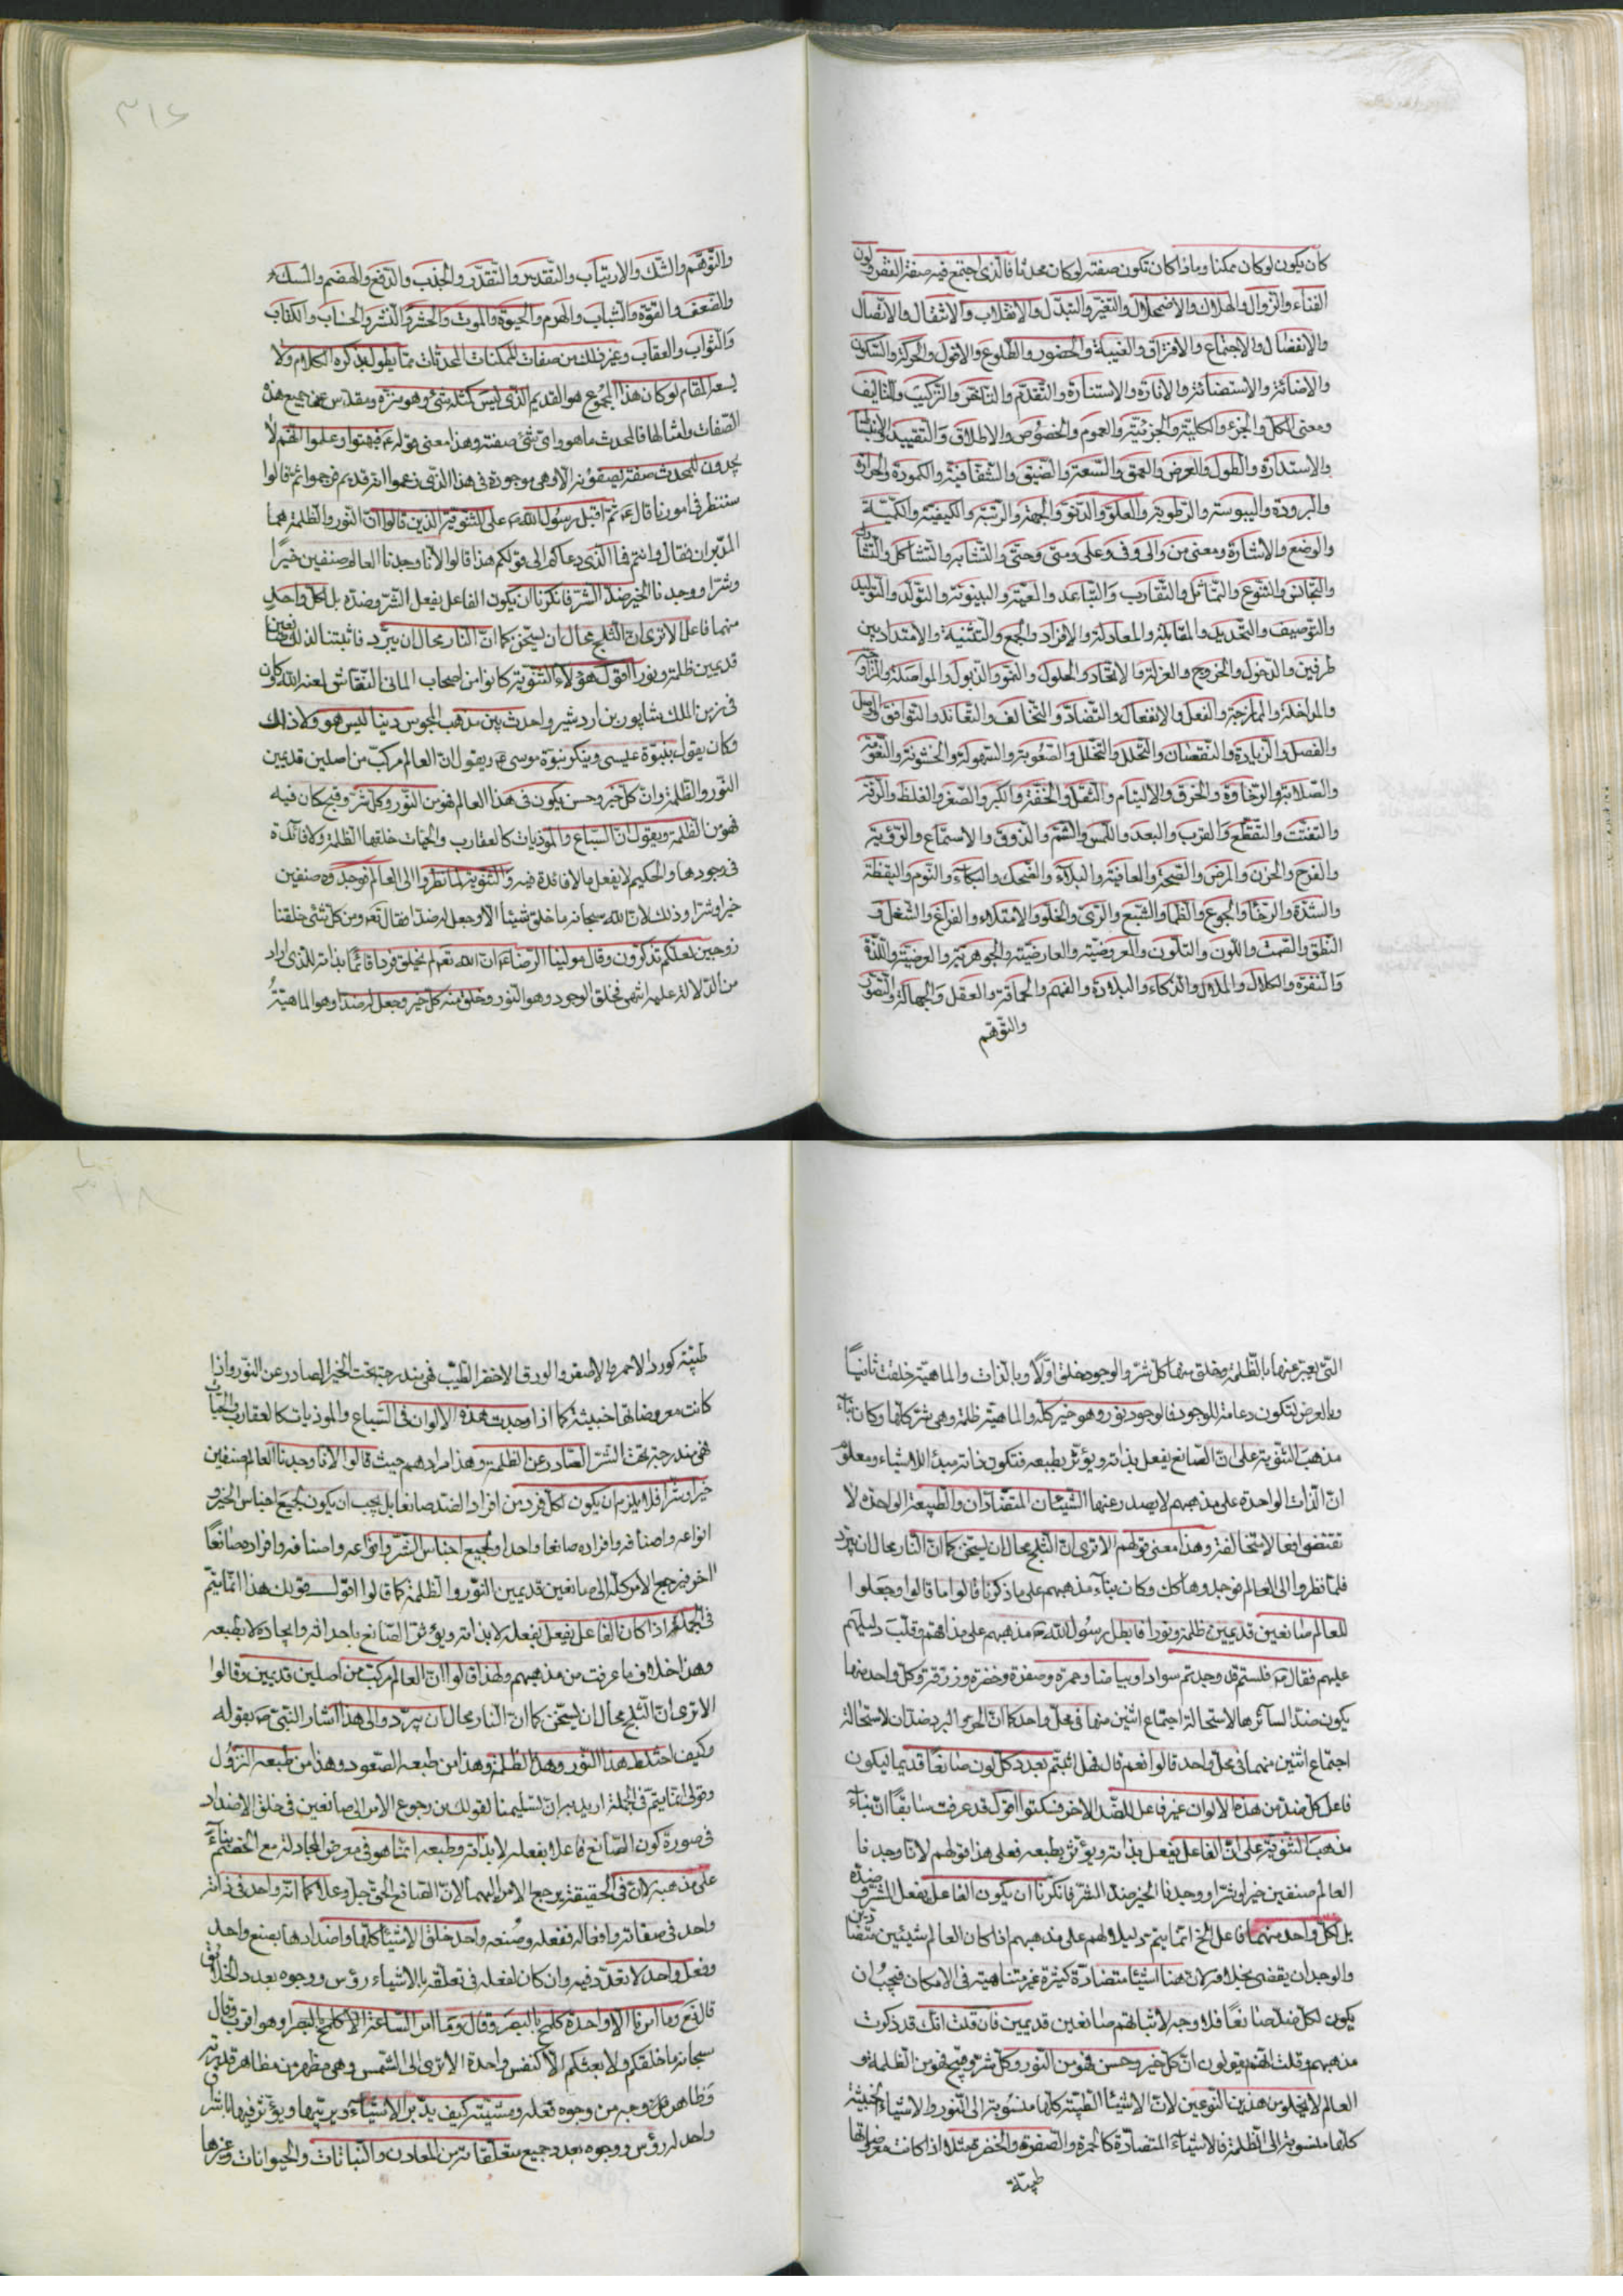 كان يكون لو كان ممكنا وما ذا كان تكون صفته لو كان محدثا فالذى اجتمع فيه صفة الفقر ولون
الفناء والزوال والهلاك والاضمحلال والتغير والتبدّل والانقلاب والانتقال والاتصال
والانفصال والاجتماع والافتراق والغيبة والحضور والطلوع والافول والحركة والسكون
والاضائة والاستضائة والانارة والاستنارة والتقدّم والتأخر والتركيب والتأليف
ومعنى الكل والجزء والكلية والجزئية والعموم والخصوص والاطلاق والتقييد
والاستدارة والطول والعرض والعمق والسعة والضيق والشفافية والكمودة والحرارة
والبرودة واليبوسة والرطوبة والعلوّ والدنوّ والجهة والرتبة والكيفية والكمية
والوضع والاشارة ومعنى من والى وفى وعلى ومتى وحتى والتشابه والتشاكل
والتجانس والتنوع والتماثل والتقارب والتباعد والمعية والبينونة والتولد والتوليد
والتوصيف والتحديد والمقابلة والمعادلة والافراد والجمع والتثنية والامتداد بين
طرفين والدخول والخروج والعزلة والاتحاد والحلول والنمو والذبول والمواصلة
والمداخلة والممازجة والفعل والانفعال والتضادّ والتخالف والتعاند والتوافق
والفصل والزيادة والنقصان والتخلل والتحلل والصعوبة والسهولة والخشونة والنعومة
والصلابة والرخاوة والخرق والالتيام والثقل والخفة والكبر والصغر والغلظ والرقة
والتفتت والتقطع والقرب والبعد واللمس والشم والذوق والاستماع والرؤية
والفرح والحزن والمرض والصحة والعافية والبلاء والضحك والبكاء والنوم واليقظة
والشدة والرخاء والجوع والظمأ والشبع والرىّ والخلو والامتلاء والفراغ والشغل و
النطق والصمت واللون والتلون والمعروضية والعارضية والجوهرية والعرضية واللذة
والنفرة والكلال والملال والذكاء والبلادة والفهم والحماقة والعقل والجهالة والتصور
والتوهّم
والتوهّم والشك والارتياب والتقدير والتقدّر والجذب والدفع والهضم والمسك
والضعف والقوة والشباب والهرم والحيوة والموت والحشر والنشر والحساب والكتاب
والثواب والعقاب وغير ذلك من صفات الممكنات المحدثات مما يطول بذكره الكلام ولا
يسعه المقام لو كان هذا المجموع هو القديم الذى ليس كمثله شئ وهو منزه ومقدس عن جميع هذه
الصفات وامثالها فالمحدث ما هو واى شئ صفته وهذا معنى قوله ع فبهتوا وعلموا انهم لا
يجدون للمحدث صفة يصفونه الا وهى موجودة فى هذا الذى زعموا انه قديم فوجموا ثم قالوا
سننظر فى امورنا قال ع ثم اقبل رسول الله ص على الثنوية الذين قالوا ان النور والظلمة هما
المدبران فقال وانتم فما الذى دعاكم الى قولكم هذا قالوا لانا وجدنا العالم صنفين خيرًا
وشرّا ووجدنا الخير ضدّ الشر فانكرنا ان يكون الفاعل يفعل الشر وضده بل لكل واحد
منهما فاعل الا ترى ان الثلج محال ان يسخن كما ان النار محال ان يبرّد فاثبتنا لذلك صانعين
قديمين ظلمة ونورا اقول هؤلاء الثنوية كانوا من اصحاب المانى النقاش لعنه الله وكان
فى زمن الملك شاپور بن اردشير واحدث بين مذهب المجوس دينا ليس هو ولا ذلك
وكان يقول بنبوّة عيسى وينكر نبوة موسى ع ويقول ان العالم مركب من اصلين قديمين
النور والظلمة وان كل خير وحسن يكون فى هذا العالم فهو من النور وكل شر وقبيح كان فيه
فهو من الظلمة ويقول ان السباع والموذيات كالعقارب والحيات خلقها الظلمة ولا فائدة
فى وجودها والحكيم لا يفعل ما لا فائدة فيه والثنوية لما نظروا الى العالم فوجدوه صنفين
خيرا وشرا وذلك لان الله سبحانه ما خلق شيئا الا وجعل له ضدّا فقال تعه ومن كل شئ خلقنا
زوجين لعلكم تذكرون وقال مولينا الرضا ع ان الله تعه لم يخلق فردا قائمًا بذاته للذى اراد
من الدلالة عليه انتهى فخلق الوجود وهو النور وخلق منه كل خير وجعل له ضدا وهو الماهيّة
التى يعبر عنها بالظلمة وخلق منها كل شر والوجود خلق اوّلا وبالذات والماهية خلقت ثانيًا
وبالعرض لتكون دعامة للوجود فالوجود نور وهو خير كله والماهية ظلمة وهى شر كلها وكان بناء
مذهب الثنوية على ان الصانع يفعل بذاته ويؤثر بطبعه فتكون ذاته مبدء للاشياء ومعلوم
ان الذات الواحدة على مذهبهم لا يصدر عنها الشيئان المتضادان والطبيعة الواحدة لا
تقتضى افعالا متخالفة وهذا معنى قولهم الا ترى ان الثلج محال ان يسخن كما ان النار محال ان تبرّد
فلما نظروا الى العالم فوجدوها كك وكان بناء مذهبهم على ما ذكرنا قالوا ما قالوا وجعلوا
للعالم صانعين قديمين ظلمة ونورا فابطل رسول الله ص مذهبهم على مذاقهم وقلب دليلهم
عليهم فقال ص فلستم قد وجدتم سوادا وبياضا وحمرة وصفرة وخضرة وزرقة وكل واحد منها
يكون ضدّا لسائرها لاستحالة اجتماع اثنين منها فى محل واحد كما ان الحر والبرد ضدان لاستحالة
اجتماع اثنين منهما فى محل واحد قالوا نعم قال فهل اثبتم بعدد كل لون صانعًا قديما ليكون
فاعل كل ضد من هذه الالوان غير فاعل الضد الاخر فسكتوا اقول قد عرفت سابقًا ان بناء
مذهب الثنوية على ان الفاعل يفعل بذاته ويؤثر بطبعه فعلى هذا قولهم لانا وجدنا
العالم صنفين خيرا وشرّا ووجدنا الخير ضدّ الشر فانكرنا ان يكون الفاعل يفعل الشر وضدّه
بل لكل واحد منهما فاعل الخ انما يتم دليلا لهم على مذهبهم اذا كان العالم شيئين متضادين
والوجدان يقضى بخلافه لان هنا اشياء متضادّة كثيرة غير متناهية فى الامكان فيجب ان
يكون لكل ضد صانعًا فلا وجه لاثباتهم صانعين قديمين فان قلت انك قد ذكرت
مذهبهم وقلت انهم يقولون ان كل خير وحسن فهو من النور وكل شر وقبيح فهو من الظلمة و
العالم لا يخلو من هذين النوعين لان الاشياء الطيبة كلها منسوبة الى النور والاشياء الخبيثة
كلها منسوبة الى الظلمة فالاشياء المتضادّة كالحمرة والصفرة والخضرة مثلا اذا كانت معروضاتها
طيبة
طيبة كورد الاحمر والاصفر والورق الاخضر الطيب فهى مندرجة تحت الخير الصادر عن النور واذا
كانت معروضاتها خبيثة كما اذا وجدت هذه الالوان فى السباع والموذيات كالعقارب والحيات
فهى مندرجة تحت الشر الصادر عن الظلمة وهذا مرادهم حيث قالوا لانا وجدنا العالم صنفين
خيرا وشرا فلا يلزم ان يكون لكل فرد من افراد الضد صانعا بل يجب ان يكون لجميع اجناس الخير و
انواعه واصنافه وافراده صانعا واحدا ولجميع اجناس الشر وانواعه واصنافه وافراده صانعًا
اخر فيرجع الامر كله الى صانعين قديمين النور والظلمة كما قالوا اقول قولك هذا انما يتم
فى الجملة اذا كان الفاعل يفعل بفعله لا بذاته ويؤثر الصانع باحداثه وايجاده لا بطبعه
وهذا خلاف ما عرفت من مذهبهم ولهذا قالوا ان العالم مركب من اصلين قديمين وقالوا
الا ترى ان الثلج محال ان يسخن كما ان النار محال ان يبرّد والى هذا اشار النبى ص بقوله
وكيف اختلط هذا النور وهذا الظلمة وهذا من طبعه الصعود وهذا من طبعه النزول
وقولى انما يتم فى الجملة اريد به ان تسليمنا لقولك من رجوع الامر الى صانعين فى خلق الاضداد
فى صورة كون الصانع فاعلا بفعله لا بذاته وطبعه انما هو فى معرض المجادلة مع الخصم بناءً
على مذهبه لان فى الحقيقة يرجع الامر اليهما لان الصانع الحق جل وعلا كما انه واحد فى ذاته
واحد فى صفاته وافعاله ففعله وصنعه واحد خلق الاشياء كلها واضدادها بصنع واحد
وفعل واحد لا تعدّد فيه وان كان لفعله فى تعلقه بالاشياء رؤس ووجوه بعدد الخلائق
قال تع وما امرنا الا واحدة كلمح بالبصر وقال وما امر الساعة الا كلمح بالبصر او هو اقرب وقال
سبحانه ما خلقكم ولا بعثكم الا كنفس واحدة الا ترى الى الشمس وهى مظهر من مظاهر قدرته
وظاهر من وجه من وجوه فعله ومشيته كيف يدبّر الاشياء ويربيها ويؤثر فيها باشراق
واحد له رؤس ووجوه بعدد جميع متعلقاته من المعادن والنباتات والحيوانات وغيرها